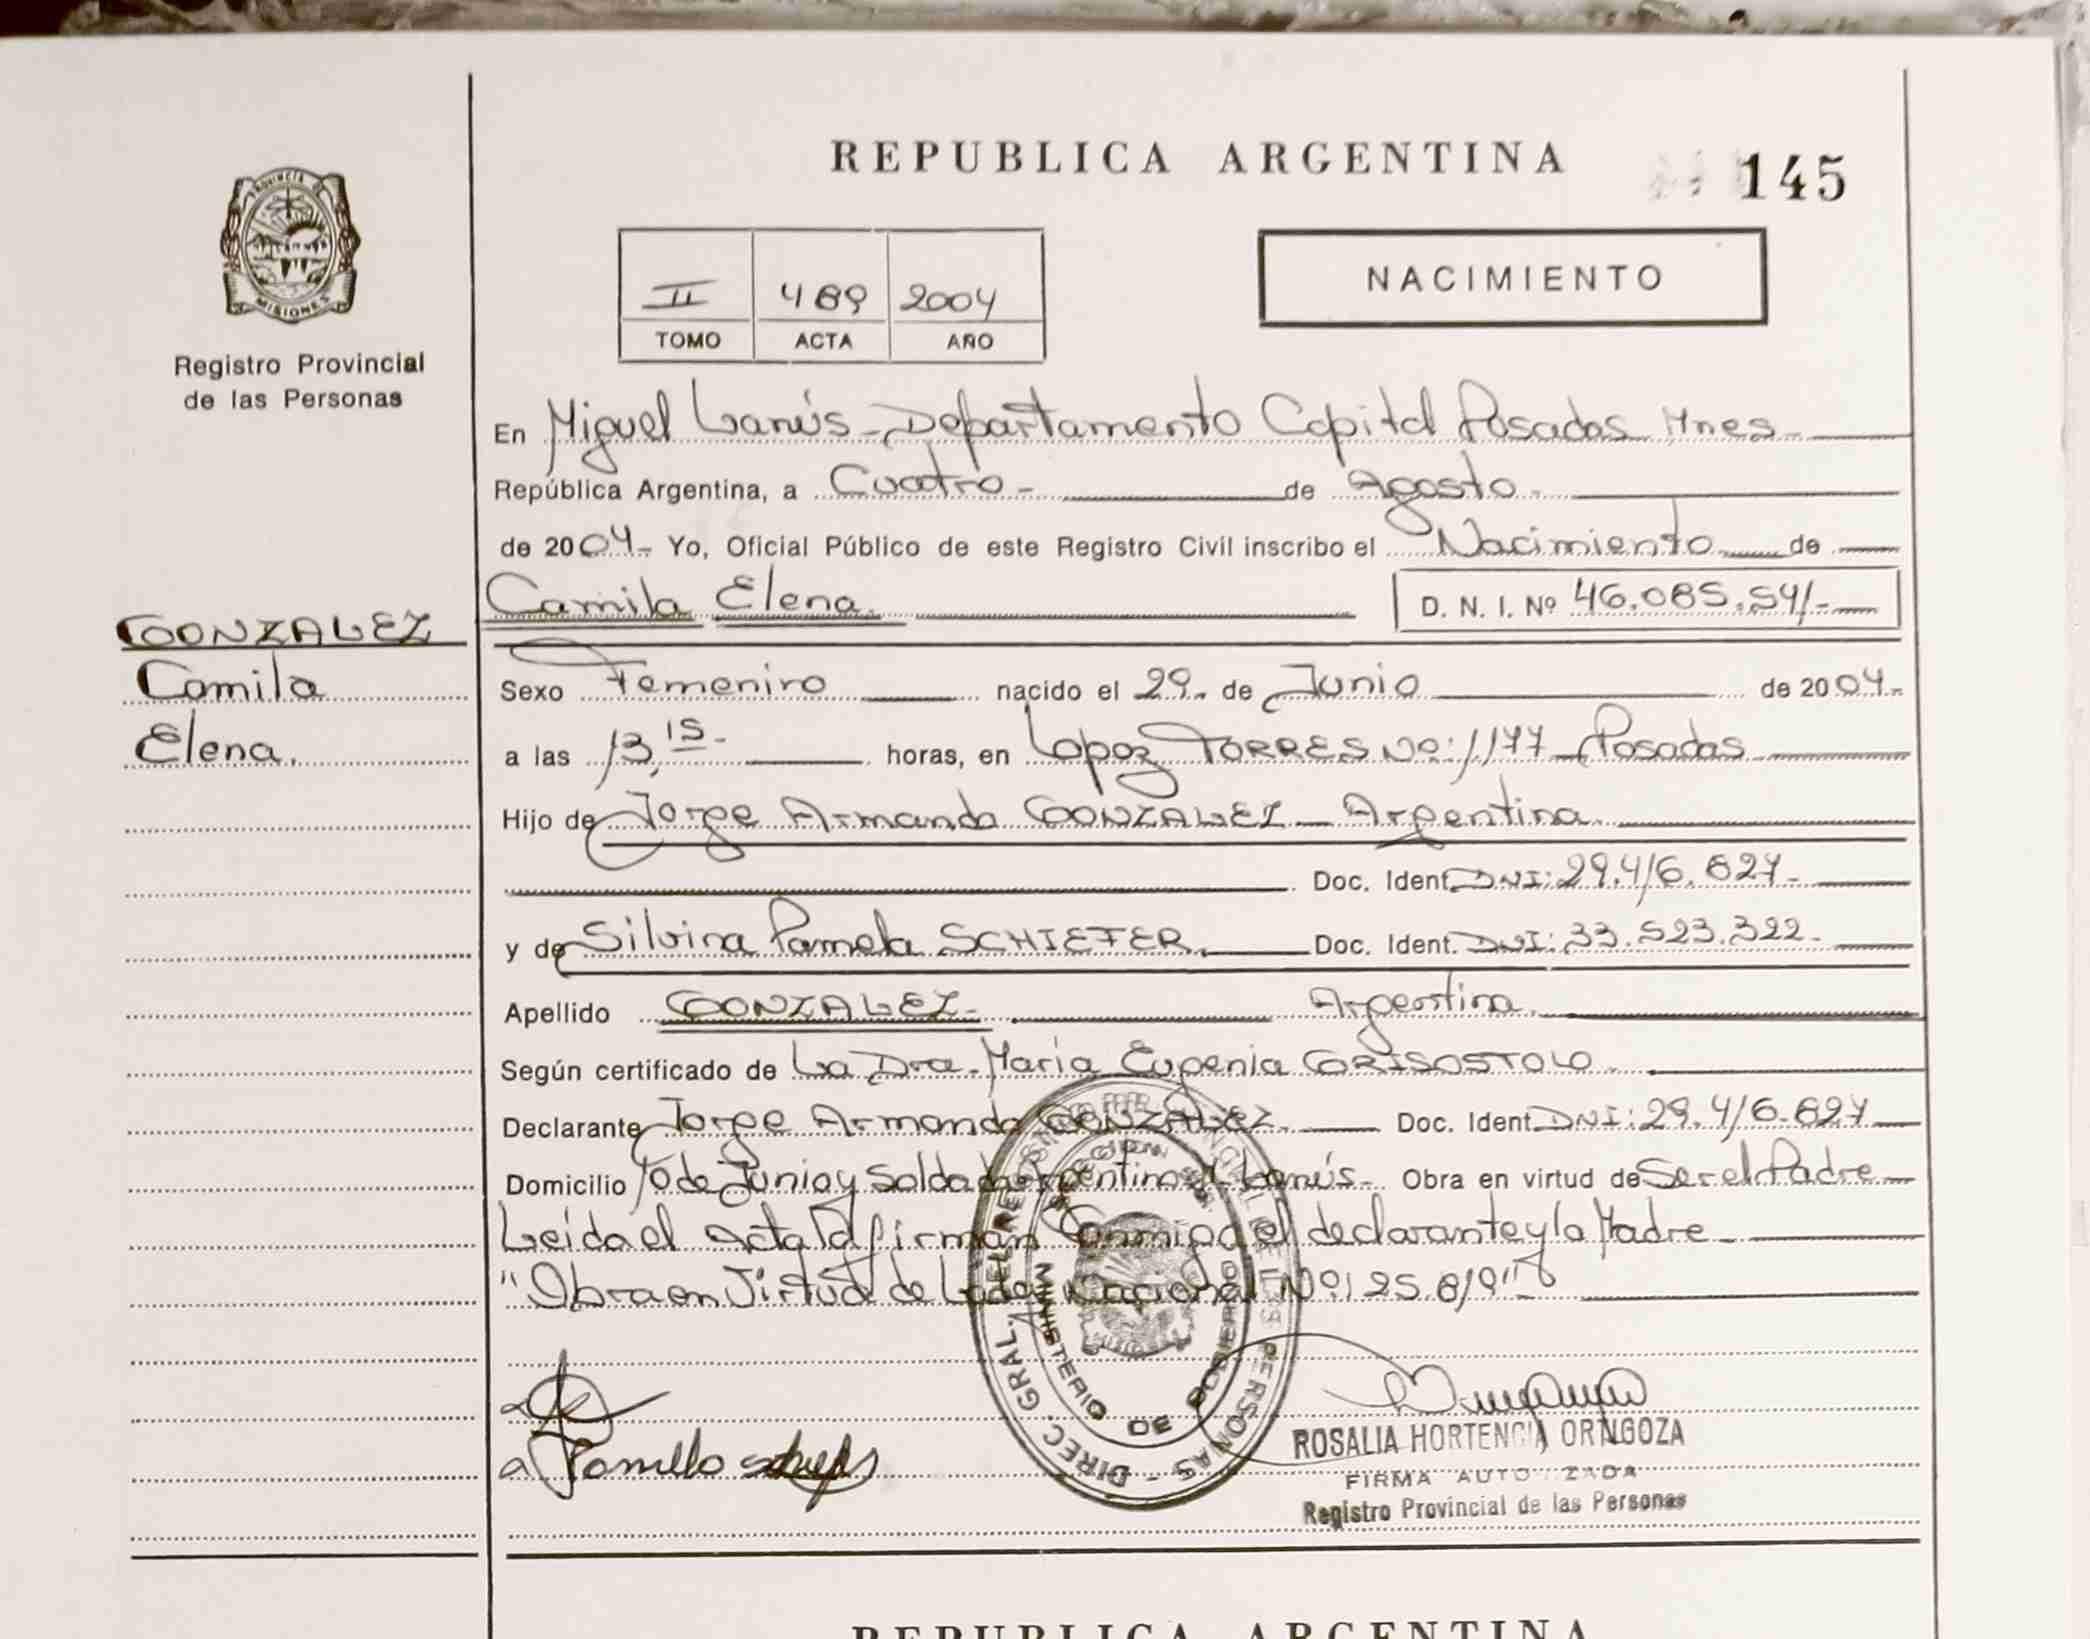 REPUBLICA ARGENTINA
145
PROVINCIA DE
MISIONES
Registro Provincial
de las Personas
II 489 2004
TOMO ACTA AÑO
NACIMIENTO
En Miguel Lanús - Departamento Capital Posadas Mnes -
República Argentina, a Cuatro - de Agosto -
de 2004 - Yo, Oficial Público de este Registro Civil inscribo el Nacimiento de
Camila Elena. D. N. I. Nº 46.085.541-
GONZALEZ
Camila
Elena.
Sexo Femenino nacido el 29 - de Junio de 2004 -
a las 13,15 - horas, en Lopez TORRES Nº: 1177 - Posadas
Hijo de Jorge Armando GONZALEZ - Argentina
Doc. Ident. DNI: 29.416.827 -
y de Silvina Pamela SCHIEFER. Doc. Ident. DNI: 33.523.322 -
Apellido GONZALEZ - Argentina.
Según certificado de La Dra. María Eugenia GRISOSTOLO
Declarante Jorge Armando GONZALEZ - Doc. Ident. DNI: 29.416.827
Domicilio 10 de Junio y Soldado Argentino Lanús - Obra en virtud de Ser el Padre
Leida el acta la firman Conmigo el declarante y la Madre
"Obra en Virtud de Nacional Nº
DIREC. GRAL. DEL REGISTRO PROVINCIAL DE LAS PERSONAS -
MINISTERIO DE GOBIERNO
ROSALIA HORTENCIA ORTIGOZA
FIRMA AUTORIZADA
Registro Provincial de las Personas
REPUBLICA ARGENTINA